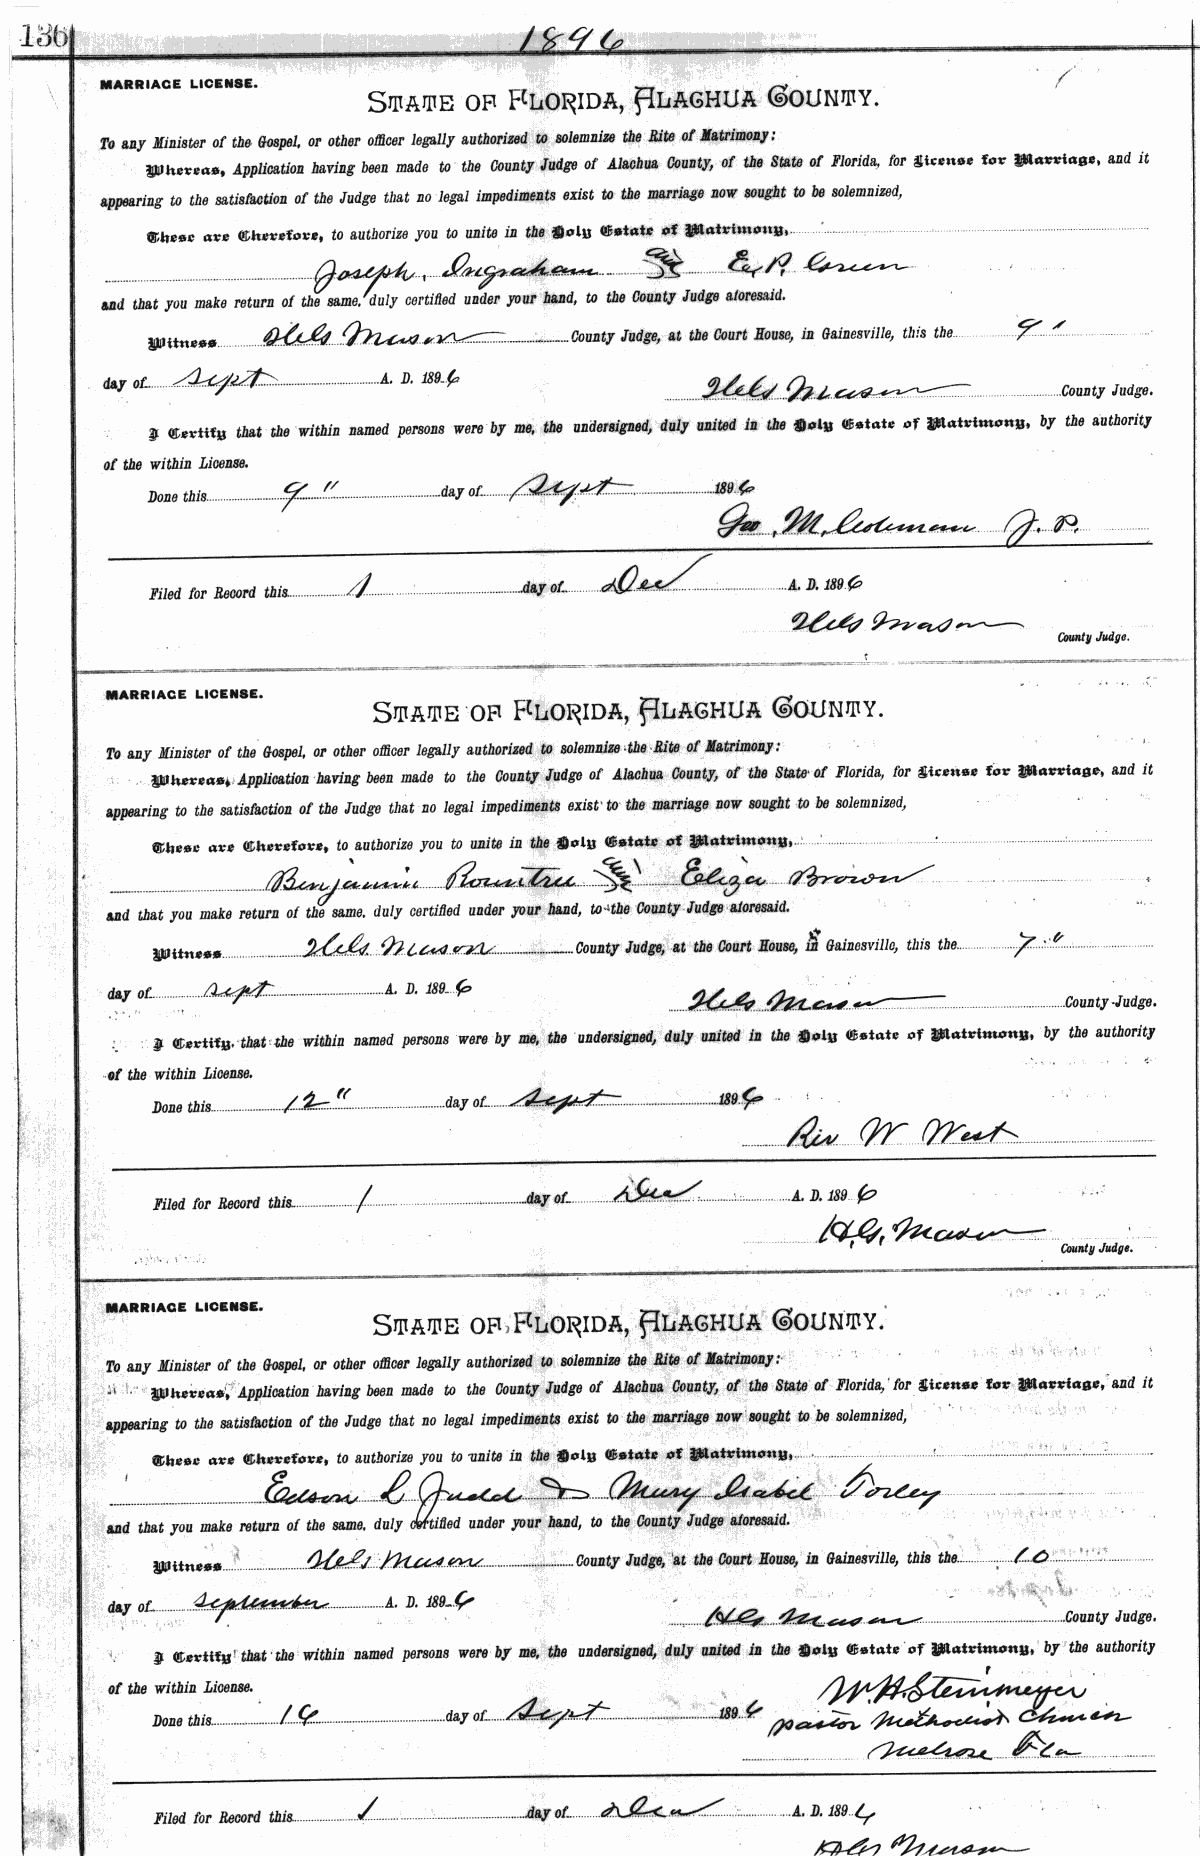 136
1896
MARRIAGE LICENSE.
STATE OF FLORIDA, ALACHUA COUNTY.
To any Minister of the Gospel, or other officer legally authorized to solemnize the Rite of Matrimony:
Whereas, Application having been made to the County Judge of Alachua County, of the State of Florida, for License for Marriage, and it
appearing to the satisfaction of the Judge that no legal impediments exist to the marriage now sought to be solemnized,
These are Therefore, to authorize you to unite in the Holy Estate of Matrimony,
Joseph, Ingraham and E. P. Green
and that you make return of the same, duly certified under your hand, to the County Judge aforesaid.
Witness H G Mason County Judge, at the Court House, in Gainesville, this the 9"
day of Sept A. D. 1896
H G Mason County Judge.
I Certify that the within named persons were by me, the undersigned, duly united in the Holy Estate of Matrimony, by the authority
of the within License.
Done this 9" day of Sept 1896
Geo. M. Coleman J. P.
Filed for Record this 1 day of Dec A. D. 1896
H G Mason
County Judge.
MARRIAGE LICENSE.
STATE OF FLORIDA, ALACHUA COUNTY.
To any Minister of the Gospel, or other officer legally authorized to solemnize the Rite of Matrimony:
Whereas, Application having been made to the County Judge of Alachua County, of the State of Florida, for License for Marriage, and it
appearing to the satisfaction of the Judge that no legal impediments exist to the marriage now sought to be solemnized,
These are Therefore, to authorize you to unite in the Holy Estate of Matrimony,
Benjamin Rountree and Eliza Brown
and that you make return of the same, duly certified under your hand, to the County Judge aforesaid.
Witness H G Mason County Judge, at the Court House, in Gainesville, this the 7"
day of Sept A. D. 1896
H G Mason County Judge.
I Certify that the within named persons were by me, the undersigned, duly united in the Holy Estate of Matrimony, by the authority
of the within License.
Done this 12" day of Sept 1896
Rev W West
Filed for Record this 1 day of Dec A. D. 1896
H. G. Mason
County Judge.
MARRIAGE LICENSE.
STATE OF FLORIDA, ALACHUA COUNTY.
To any Minister of the Gospel, or other officer legally authorized to solemnize the Rite of Matrimony:
Whereas, Application having been made to the County Judge of Alachua County, of the State of Florida, for License for Marriage, and it
appearing to the satisfaction of the Judge that no legal impediments exist to the marriage now sought to be solemnized,
These are Therefore, to authorize you to unite in the Holy Estate of Matrimony,
Edson L Judd & Mary Isabel
and that you make return of the same, duly certified under your hand, to the County Judge aforesaid.
Witness H G Mason County Judge, at the Court House, in Gainesville, this the 10
day of September A. D. 1896
H G Mason County Judge.
I Certify that the within named persons were by me, the undersigned, duly united in the Holy Estate of Matrimony, by the authority
of the within License.
W. H. Steinmeyer
Done this 16 day of Sept 1896 Pastor Methodist Church
Melrose Fla
Filed for Record this 1 day of Dec A. D. 1896
H G Mason